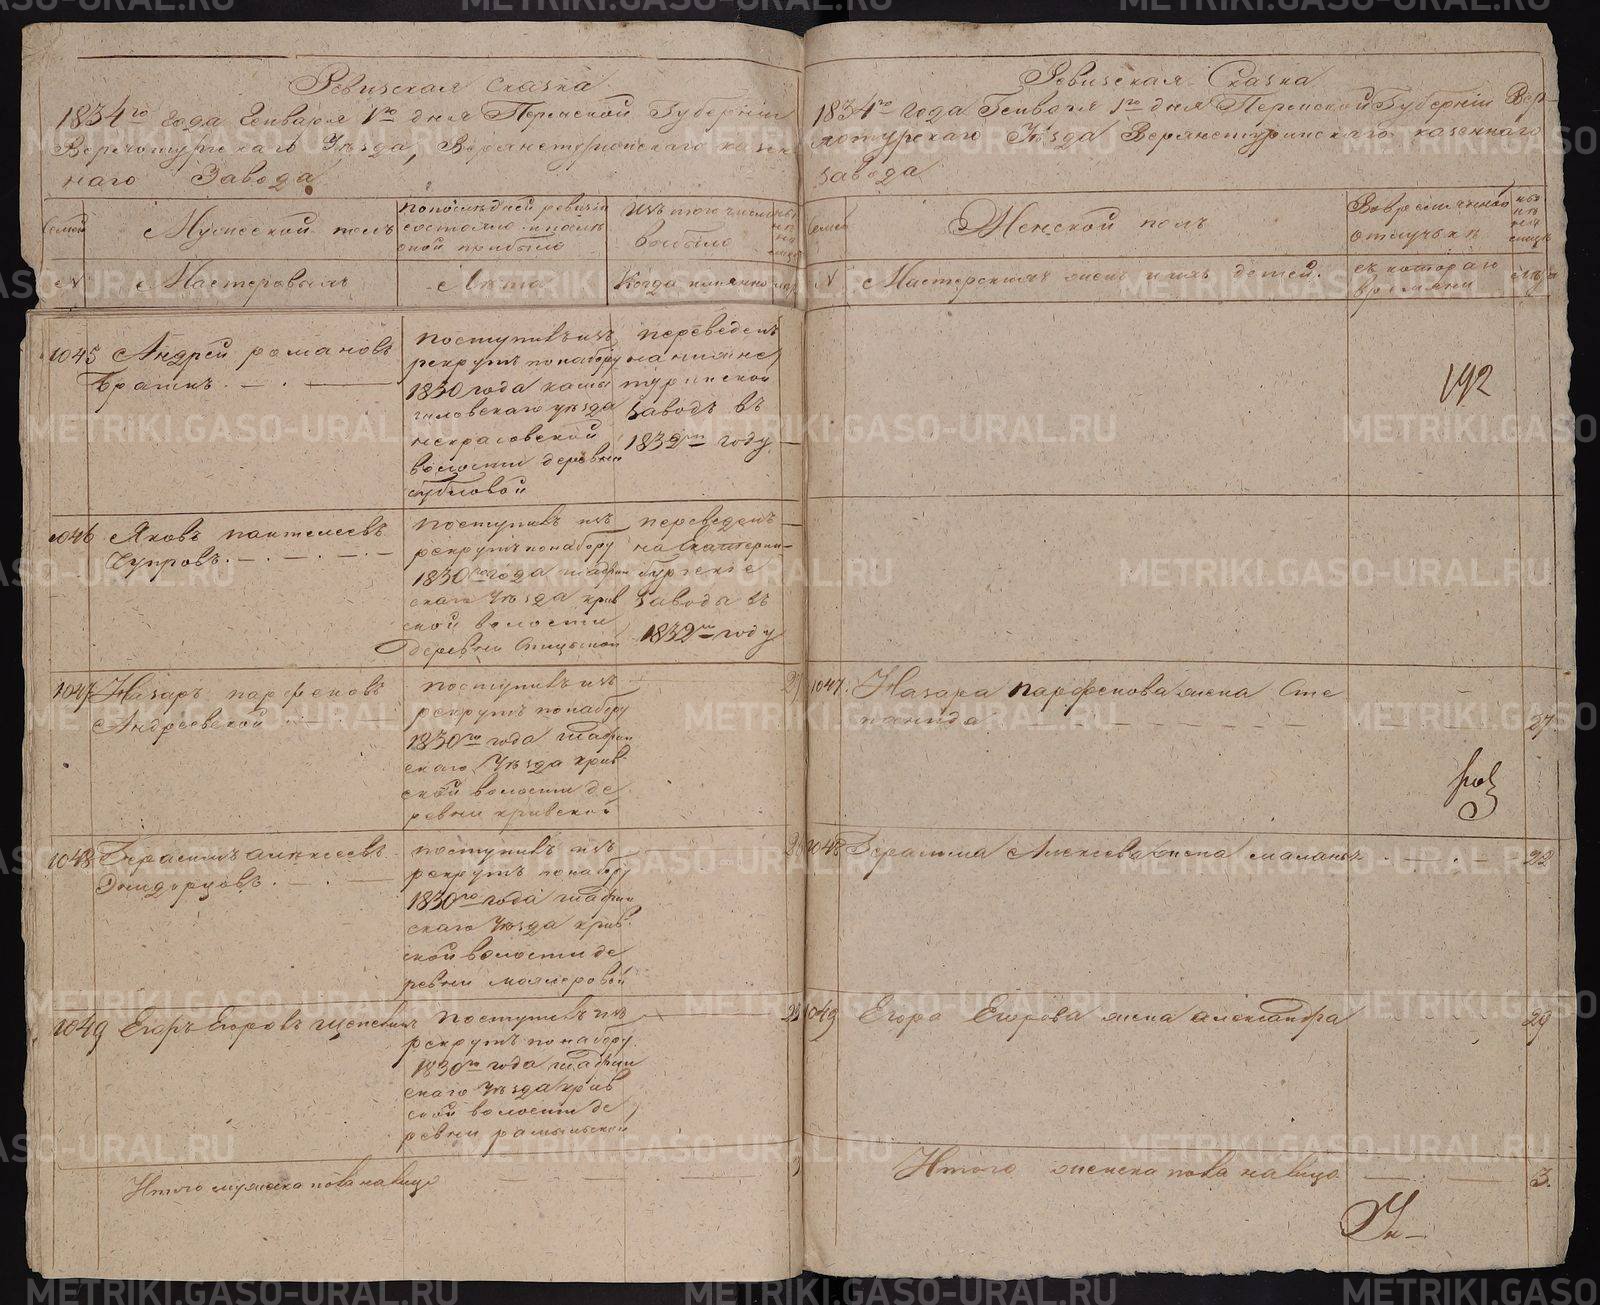 Ревизская Сказка
1834го года Генваря 1го дня Пермской Губернiи
Верхотурскаго Уѣзда, Верхнетуринскаго казен
наго Завода
Семей
Мужеской полъ
по последней ревизiи
состояло и после
оной прибыло
изъ того числа
выбыло
№
Мастеровыя
Лѣта
Когда имянно
1045
Андрей романовъ
поступивъ изъ
рекрутъ по набору
1830 года камы
шловскаго уѣзда
некрасовской
волости деревни
переведенъ
на нижне
туринской
заводъ въ
1832мъ году
1046
Яковъ пантелеевъ
Чупровъ
поступивъ изъ
рекрутъ по набору
1830го года шадрин
скаго Уѣзда крив
ской волости
деревни
переведенъ
на Екатерин
бургскiе
заводы въ
1832мъ году
1047
Назаръ парфеновъ
Андреевской
поступивъ изъ
рекрутъ по набору
1830го года шадрин
скаго Уѣзда крив
ской волости де
ревни кривской
1048
Герасимъ алексеевъ
поступивъ изъ
рекрутъ по набору
1830го года шадрин
скаго Уѣзда крив
ской волости де
ревни
1049
Егоръ Егоровъ
поступивъ изъ
рекрутъ по набору
1830го года шадрин
скаго Уѣзда крив
ской волости де
ревни
Итого мужска пола на лицо
3
Ревизская Сказка
1834го года Генваря 1го дня Пермской Губернiи Вер
хотурскаго Уѣзда Верхнетуринскаго казеннаго
завода
Семей
Женской полъ
Во временной
отлучьке
№
Мастерскихъ жены и ихъ детей.
съ котораго
времяни
лѣта
192
1047.
Назара парфенова жена Сте
панида
27.
1048
Герасима Алексеева жена маланья
22
1049
Егора Егорова жена александра
29
Итого женска пола на лицо
3.
METRIKI.GASO-URAL.RU